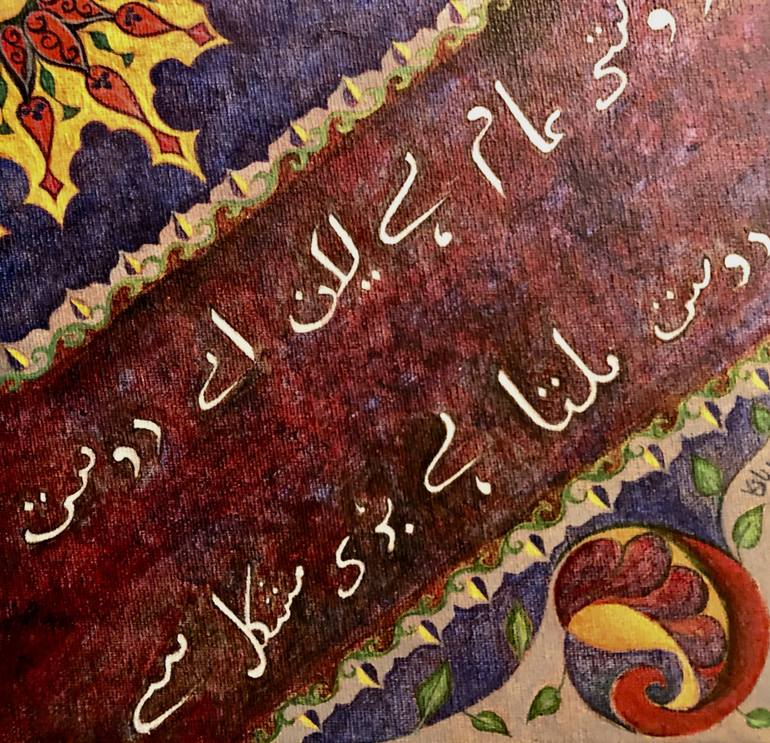 دوستی عام ہے لیکن اے دوست
دوست ملتا ہے بڑی مشکل سے